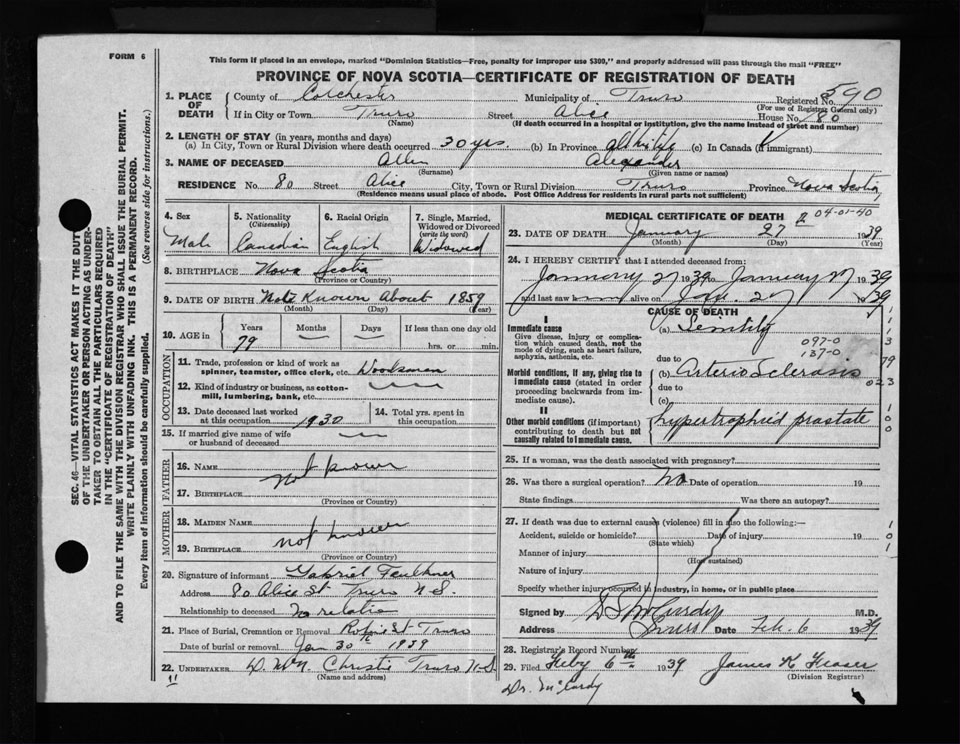 FORM 6
This form if placed in an envelope, marked "Dominion Statistics—Free, penalty for improper use $300," and properly addressed will pass through the mail "FREE"
PROVINCE OF NOVA SCOTIA—CERTIFICATE OF REGISTRATION OF DEATH
1. PLACE OF DEATH County of Colchester Municipality of Truro Registered No. 590
(For use of Registrar General only)
If in City or Town Truro Street Alice House No. 80
(Name) (If death occurred in a hospital or institution, give the name instead of street and number)
2. LENGTH OF STAY (in years, months and days)
(a) In City, Town or Rural Division where death occurred 30 yrs. (b) In Province all his life (c) In Canada (if immigrant)
3. NAME OF DECEASED Allen Alexander
(Surname) (Given name or names)
RESIDENCE No. 80 Street Alice City, Town or Rural Division Truro Province Nova Scotia
(Residence means usual place of abode. Post Office Address for residents in rural parts not sufficient)
4. Sex Male
5. Nationality (Citizenship) Canadian
6. Racial Origin English
7. Single, Married, Widowed or Divorced (write the word) Widowed
8. BIRTHPLACE Nova Scotia
(Province or Country)
9. DATE OF BIRTH Not Known About 1859
(Month) (Day) (Year)
10. AGE in Years 79 Months Days If less than one day hrs. or min.
OCCUPATION
11. Trade, profession or kind of work as spinner, teamster, office clerk, etc. Woodsman
12. Kind of industry or business, as cotton-mill, lumbering, bank, etc.
13. Date deceased last worked at this occupation 1930
14. Total yrs. spent in this occupation
15. If married give name of wife or husband of deceased
FATHER
16. NAME not known
17. BIRTHPLACE
(Province or Country)
MOTHER
18. MAIDEN NAME
19. BIRTHPLACE not known
(Province or Country)
20. Signature of informant Gabriel Faulkner
Address 80 Alice St Truro N S.
Relationship to deceased No relation
21. Place of Burial, Cremation or Removal Robie St Truro
Date of burial or removal Jan 30th 1939
22. UNDERTAKER Christie Truro N-S
(Name and address)
11
MEDICAL CERTIFICATE OF DEATH
2 04-01-40
23. DATE OF DEATH January 27 1939
(Month) (Day) (Year)
24. I HEREBY CERTIFY that I attended deceased from:
January 27 1939 to January 27 1939
and last saw alive on Jan. 27 1939
CAUSE OF DEATH
I
Immediate cause
Give disease, injury or complication which caused death, not the mode of dying, such as heart failure, asphyxia, asthenia, etc.
(a) Senility
097-0
137-0
due to
Morbid conditions, if any, giving rise to immediate cause (stated in order proceeding backwards from immediate cause).
(b) Arterio Sclerosis
due to
(c)
II
Other morbid conditions (if important) contributing to death but not causally related to immediate cause.
hypertrophied prostate
1
1
1
3
79
023
1
0
0
25. If a woman, was the death associated with pregnancy?
26. Was there a surgical operation? No Date of operation 19
State findings Was there an autopsy?
27. If death was due to external causes (violence) fill in also the following:—
Accident, suicide or homicide? Date of injury 19
(State which)
Manner of injury
(How sustained)
Nature of injury
Specify whether injury occurred in industry, in home, or in public place
1
0
1
Signed by McCurdy M.D.
Address Truro Date Feb. 6 1939
28. Registrar's Record Number
29. Filed Feby 6th 1939 James K Fraser
(Division Registrar)
Dr. McCurdy
SEC. 46—VITAL STATISTICS ACT MAKES IT THE DUTY OF THE UNDERTAKER OR PERSON ACTING AS UNDERTAKER TO OBTAIN ALL THE PARTICULARS REQUIRED IN THE "CERTIFICATE OF REGISTRATION OF DEATH"
AND TO FILE THE SAME WITH THE DIVISION REGISTRAR WHO SHALL ISSUE THE BURIAL PERMIT.
WRITE PLAINLY WITH UNFADING INK. THIS IS A PERMANENT RECORD.
Every item of information should be carefully supplied. (See reverse side for instructions.)